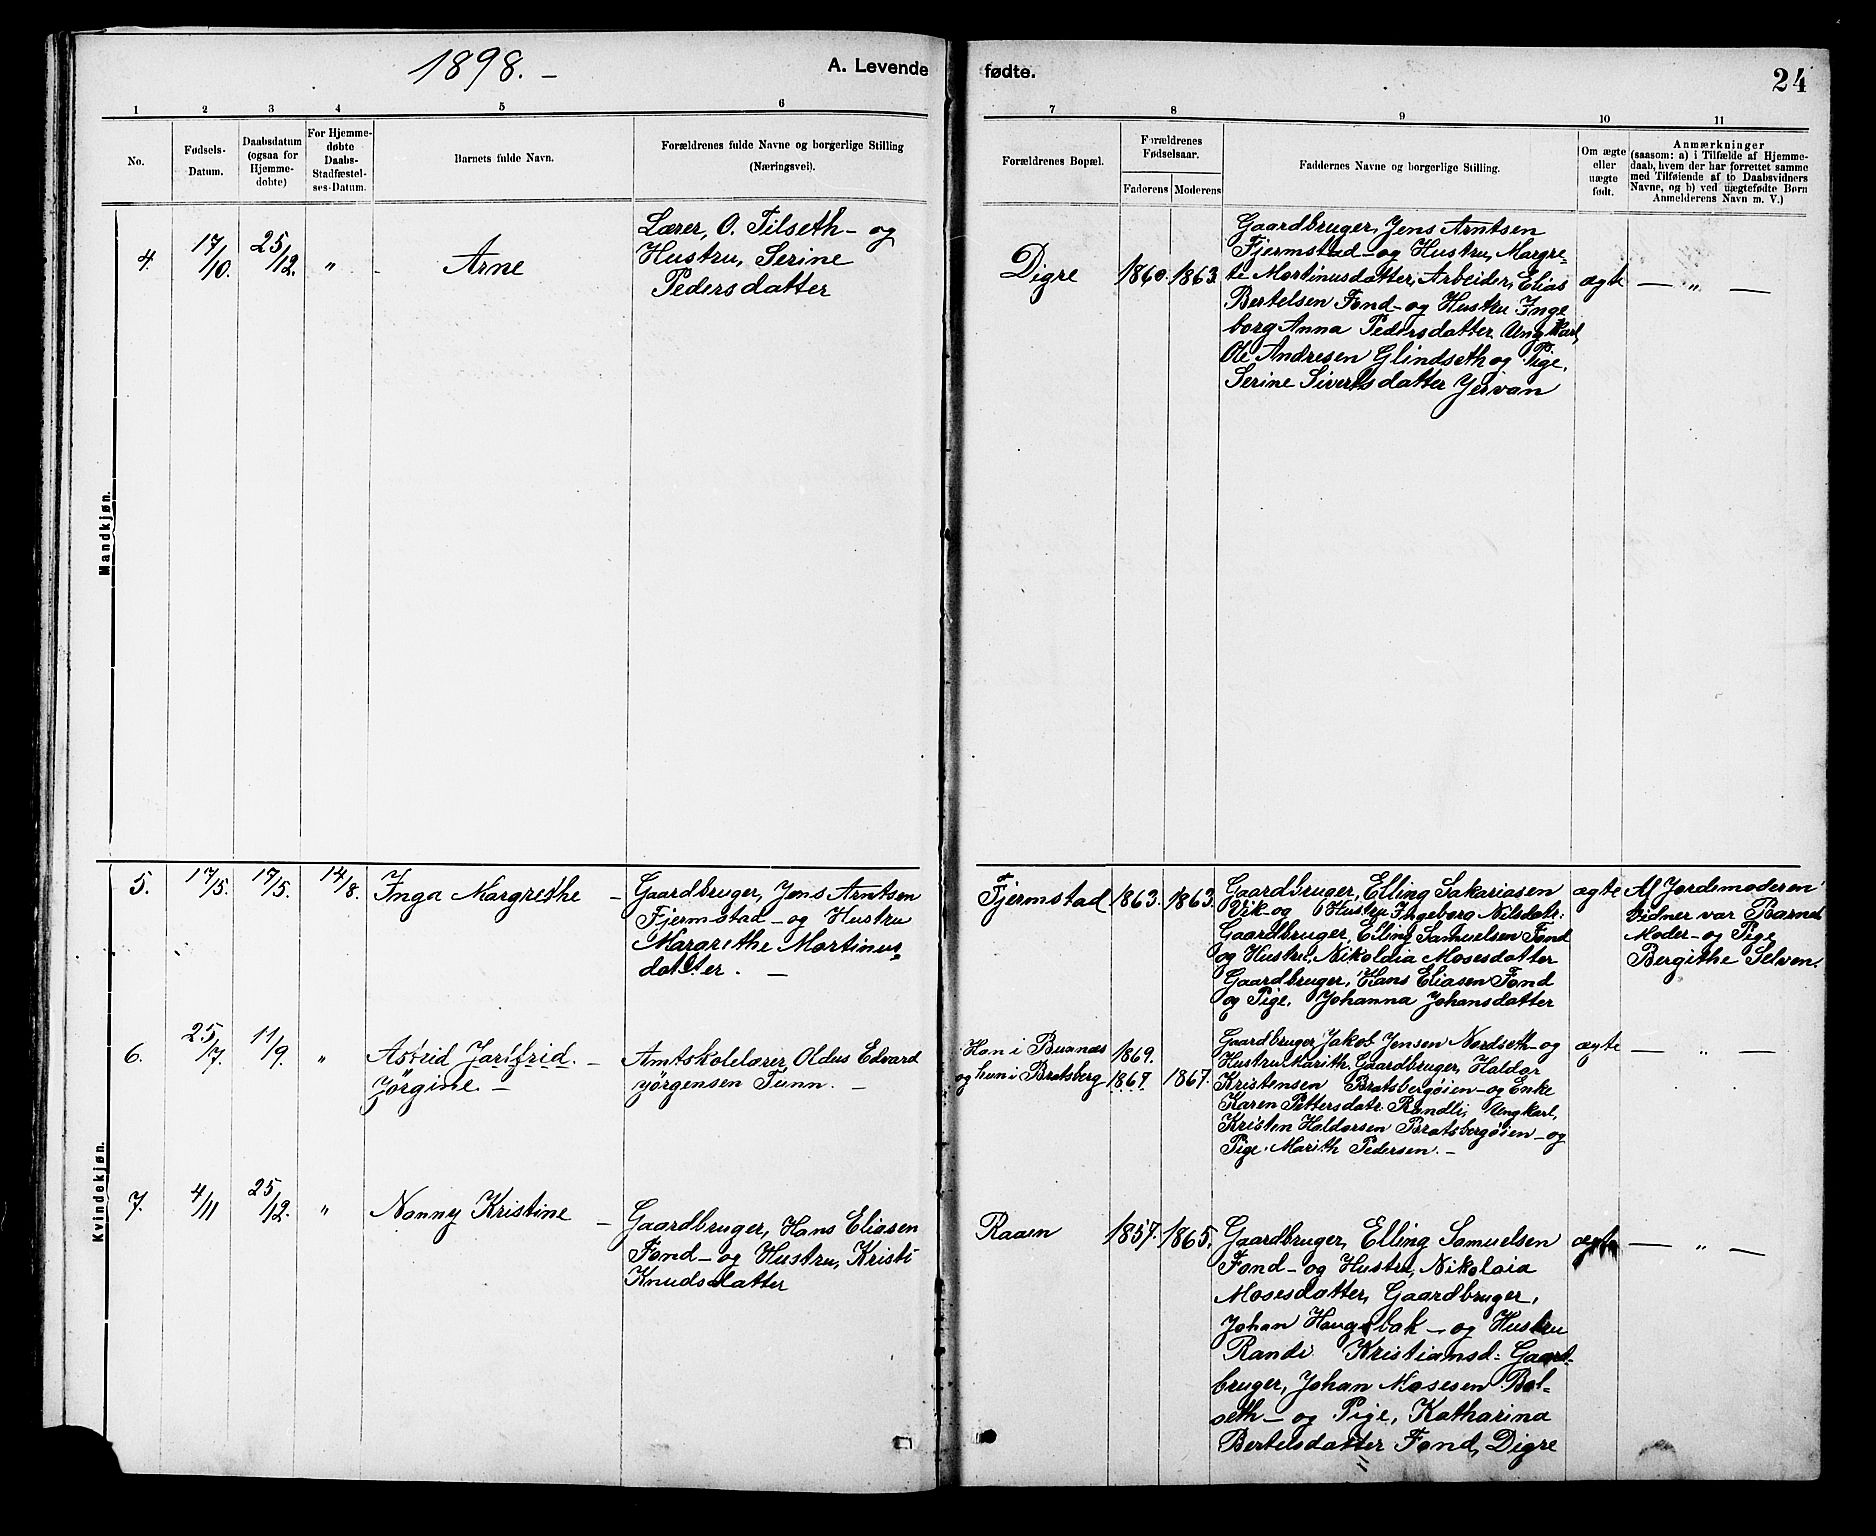 1898. –
A. Levende
fødte.
24
1
2
3
4
5
6
7
8
9
10
11
No.
Fødsels-
Datum.
Daabsdatum
(ogsaa for
Hjemme-
døbte)
For Hjemme-
døbte
Daabs-
Stadfæstel-
ses-Datum.
Barnets fulde Navn.
Forældrenes fulde Navne og borgerlige Stilling
(Næringsvei).
Forældrenes Bopæl.
Forældrenes
Fødselsaar.
Faderens
Moderens
Faddernes Navne og borgerlige Stilling.
Om ægte
eller
uægte
født.
Anmærkninger
(saasom: a) i Tilfælde af Hjemme-
daab, hvem der har forrettet samme
med Tilføiende af to Daabsvidners
Navne, og b) ved uægtefødte Børn
Anmelderens Navn m. V.)
Mandkjøn.
4.
17/10.
25/12.
"
Arne
Lærer, O. Tilseth – og
Hustru, Serine
Pedersdatter
Digre
1860.
1863.
Gaardbruger, Jens Arntsen
Fjermstad – og Hustru, Margre-
te Martinusdatter, Arbeider, Elias
Bertelsen Fond – og Hustru Inge
borg Anna Pedersdatter. Ungkarl,
Ole Andresen Glindseth og Pige,
Serine Sivertsdatter Jervan
ægte
— " —
Kvindekjøn.
5.
17/5.
17/5.
14/8.
Inga Margrethe –
Gaardbruger, Jens Arntsen
Fjermstad – og Hustru
Margrethe Martinus-
datter. –
Fjermstad
1863.
1863.
Gaardbruger, Elling Sakariasen
Vik – og Hustru Ingeborg Nilsdatr:
Gaardbruger, Elling Samuelsen Fond
og Hustru, Nikoldia Mosesdatter
Gaardbruger, Hans Eliasen Fond
og Pige, Johanna Johansdatter
ægte
Af Jordemoderen
Vidner var Barnets
Moder – og Pige
Bergithe Selven.
6.
25/7.
11/9.
"
Astrid Jarlfrid. –
Jörgine –
Amtskolelærer, Oldus Edvard
Jörgensen Tunn. –
Han i Busnæs
og hun i Bratsberg
1869.
1867.
1867.
Gaardbruger, Jakob Jensen Nordseth – og
Hustru Marith. Gaardbruger, Haldor
Kristensen Bratsbergøien – og Enke
Karen Pettersdatr. Randli, Ungkarl,
Kristen Haldorsen Bratsbergøien – og
Pige. Marith Pedersen. –
ægte
— " —
7.
4/11
25/12.
"
Nanny Kristine –
Gaardbruger, Hans Eliasen
Fond – og Hustru, Kristi
Knudsdatter
Raaen
1857.
1865.
Gaardbruger, Elling Samuelsen
Fond – og Hustru, Nikolaia
Mosesdatter, Gaardbruger,
Johan Haugsbak – og Hustru
Randi Kristiansd: Gaard-
bruger, Johan Mosesen Bal-
seth – og Pige, Katharina
Bertelsdatter Fond, Digre
ægte
— " —